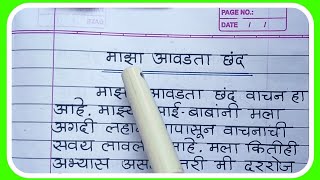 PAGE NO.:
DATE / /
माझा आवडता छंद
माझा आवडता छंद वाचन हा
आहे. माझ्या आई-बाबांनी मला
अगदी पासून वाचनाची
सवय आहे. मला कितीही
अभ्यास तरी मी दररोज